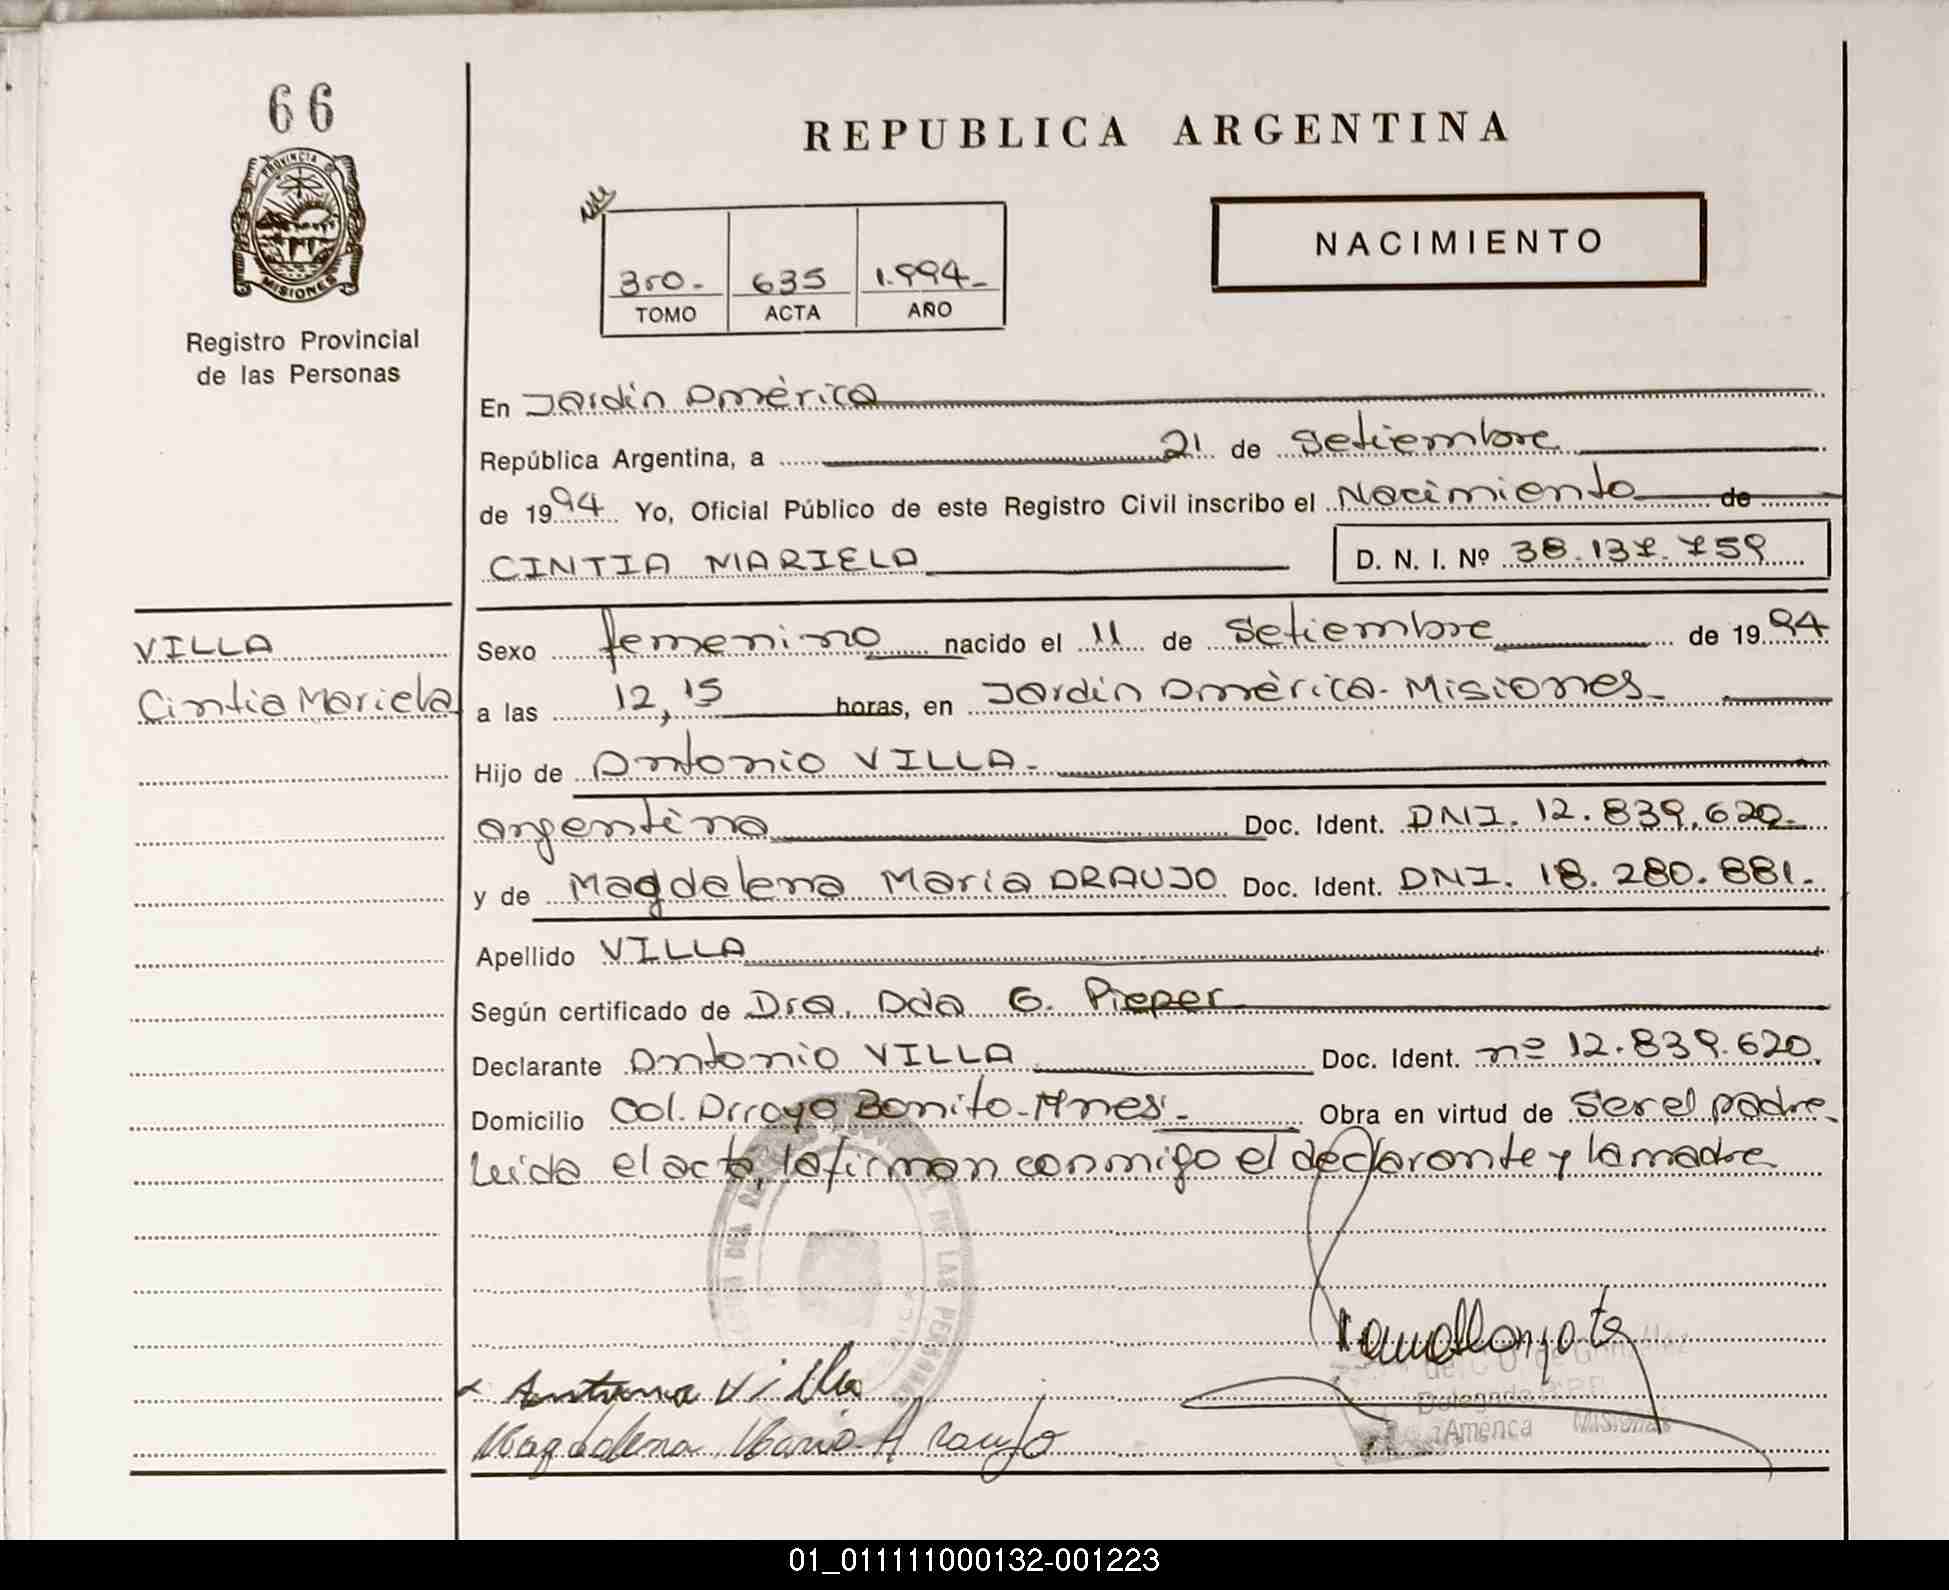 66
PROVINCIA DE
MISIONES
Registro Provincial
de las Personas
REPUBLICA ARGENTINA
NACIMIENTO
3ro.- 635 1.994.-
TOMO ACTA AÑO
En Jardín América
República Argentina, a 21 de Setiembre
de 1994 Yo, Oficial Público de este Registro Civil inscribo el Nacimiento de
CINTIA MARIELA D. N. I. Nº 38.137.759
VILLA
Cintia Mariela
Sexo femenino nacido el 11 de Setiembre de 1994
a las 12,15 horas, en Jardín América - Misiones.-
Hijo de Antonio VILLA.-
argentino Doc. Ident. DNI. 12.839.620.-
y de Magdalena Maria ARAUJO Doc. Ident. DNI. 18.280.881.-
Apellido VILLA
Según certificado de Dra. Ada G. Pieper
Declarante Antonio VILLA Doc. Ident. nº 12.839.620.
Domicilio Col. Arroyo Bonito - Mnes.- Obra en virtud de Ser el padre.
Leida el acta, la firman conmigo el declarante y la madre
DE LAS PERSONAS
Delegada
América Misiones
Villa
Magdalena Maria Araujo
01_011111000132-001223